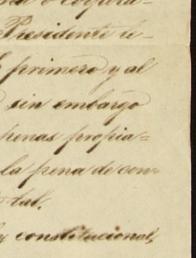 Presidente le-
primero y al
sin embargo
penas propia=
la pena de con-
tal.
constitucional,